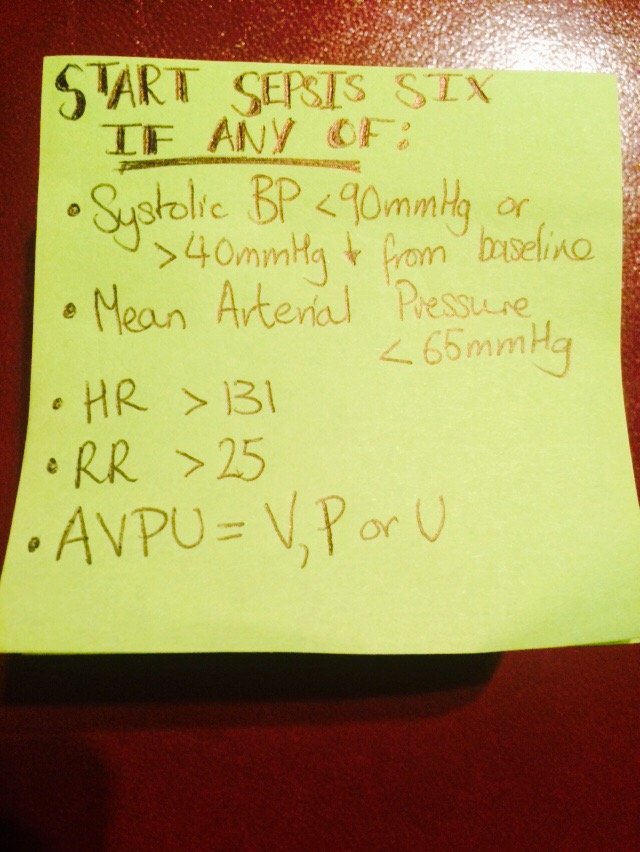 START SEPSIS SIX
IF ANY OF:
• Systolic BP <90mmHg or
>40mmHg ↓ from baseline
• Mean Arterial Pressure
<65mmHg
• HR >131
• RR >25
• AVPU = V, P or U